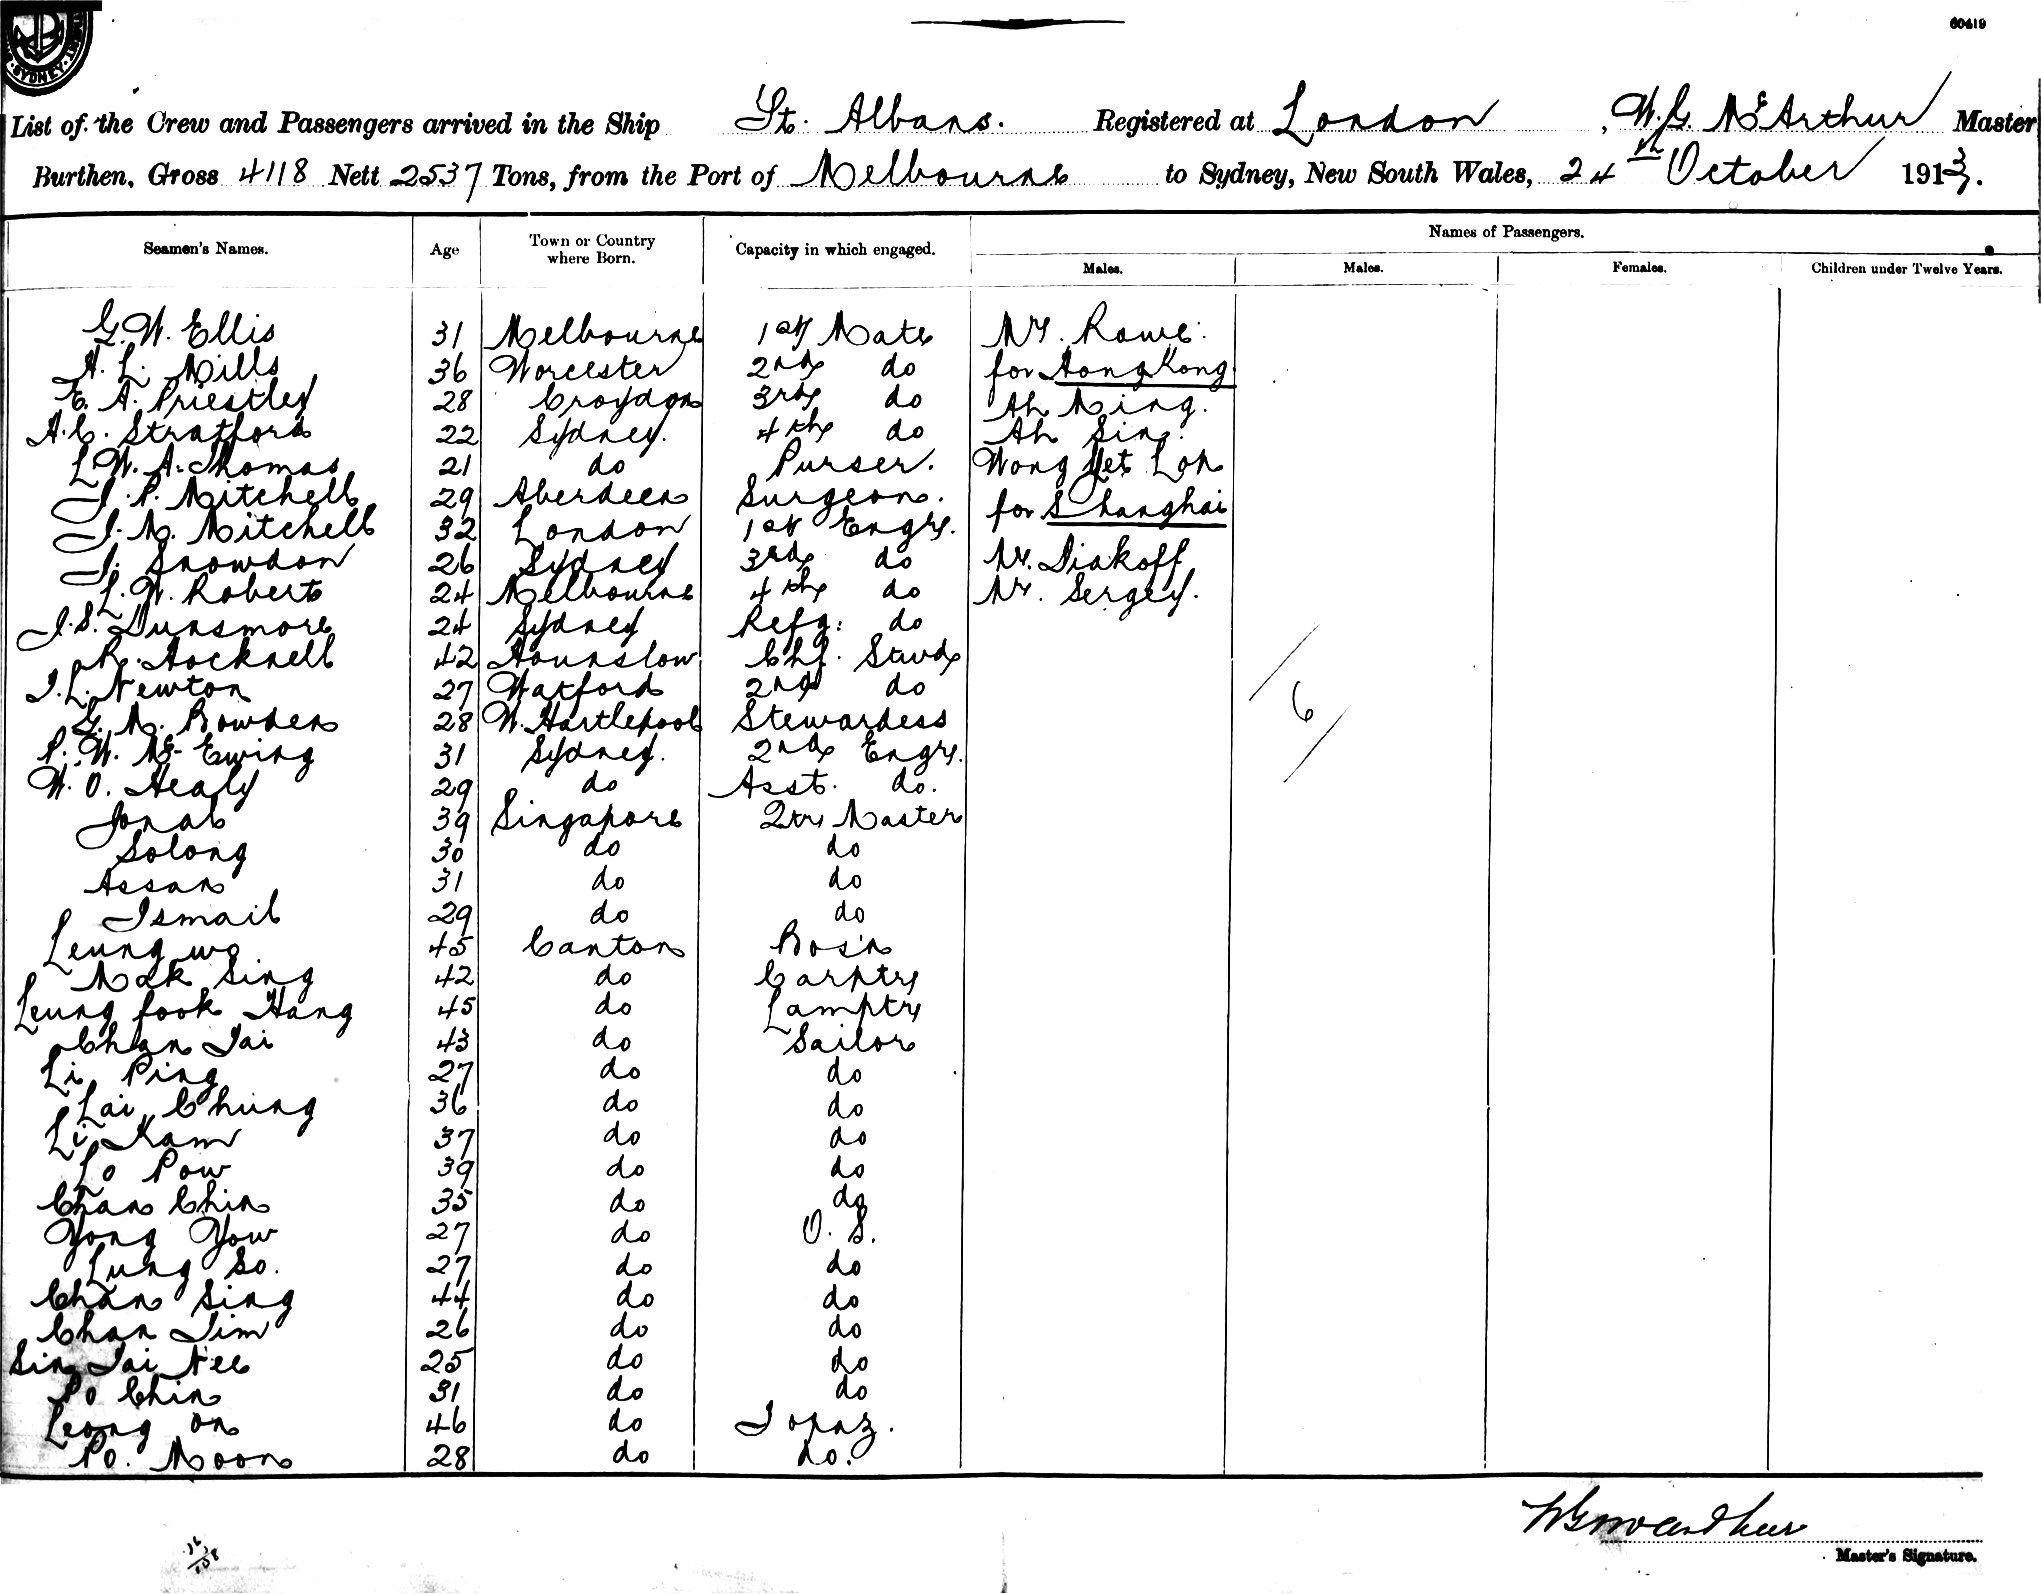 60419
SYDNEY
List of the Crew and Passengers arrived in the Ship St. Albans. Registered at London, W.G. McArthur Master
Burthen, Gross 4118 Nett 2537 Tons, from the Port of Melbourne to Sydney, New South Wales, 24th October 1913.
Seamen's Names. Age Town or Country where Born. Capacity in which engaged. Names of Passengers.
Males. Males. Females. Children under Twelve Years.
G.W. Ellis 31 Melbourne 1st Mate Mr. Rowe.
H. L. Mills 36 Worcester 2nd do for Hong Kong
E. A. Priestley 28 Croydon 3rd do Ah Ming.
A.C. Stratford 22 Sydney. 4th do Ah Sing.
L.W.A. Thomas 21 do Purser. Wong Yet Lok
J. P. Mitchell 29 Aberdeen Surgeon. for Shanghai
J. M. Mitchell 32 London 1st Engr.
J. Snowdon 26 Sydney 3rd do Mr. Diakoff
L. W. Roberts 24 Melbourne 4th do Mr. Sergey.
J.S. Dunsmore 24 Sydney Refg: do
R. Hocknell 42 Hounslow Chf. Stwd
J.L. Newton 27 Watford 2nd do
G. M. Bowden 28 W. Hartlepool Stewardess
6
P. W. Mc Ewing 31 Sydney. 2nd Engr.
W. O. Healy 29 do Asst. do.
Jonal 39 Singapore Qtr Master
Solong 30 do do
Assan 31 do do
Ismail 29 do do
Leung wo 45 Canton Bosn
Mak Sing 42 do Carptr
Leung fook Hang 45 do Lamptr
Chan Tai 43 do Sailor
Li Ping 27 do do
Lai Chung 36 do do
Li Kam 37 do do
Lo Pow 39 do do
Chan Chin 35 do do
Yong Yow 27 do O. S.
Lung So. 27 do do
Chan Sing 44 do do
Chan Tim 26 do do
Sin Tai Nee 25 do do
Po Chin 31 do do
Leong on 46 do Topaz.
Po. Moon 28 do do.
Master's Signature.